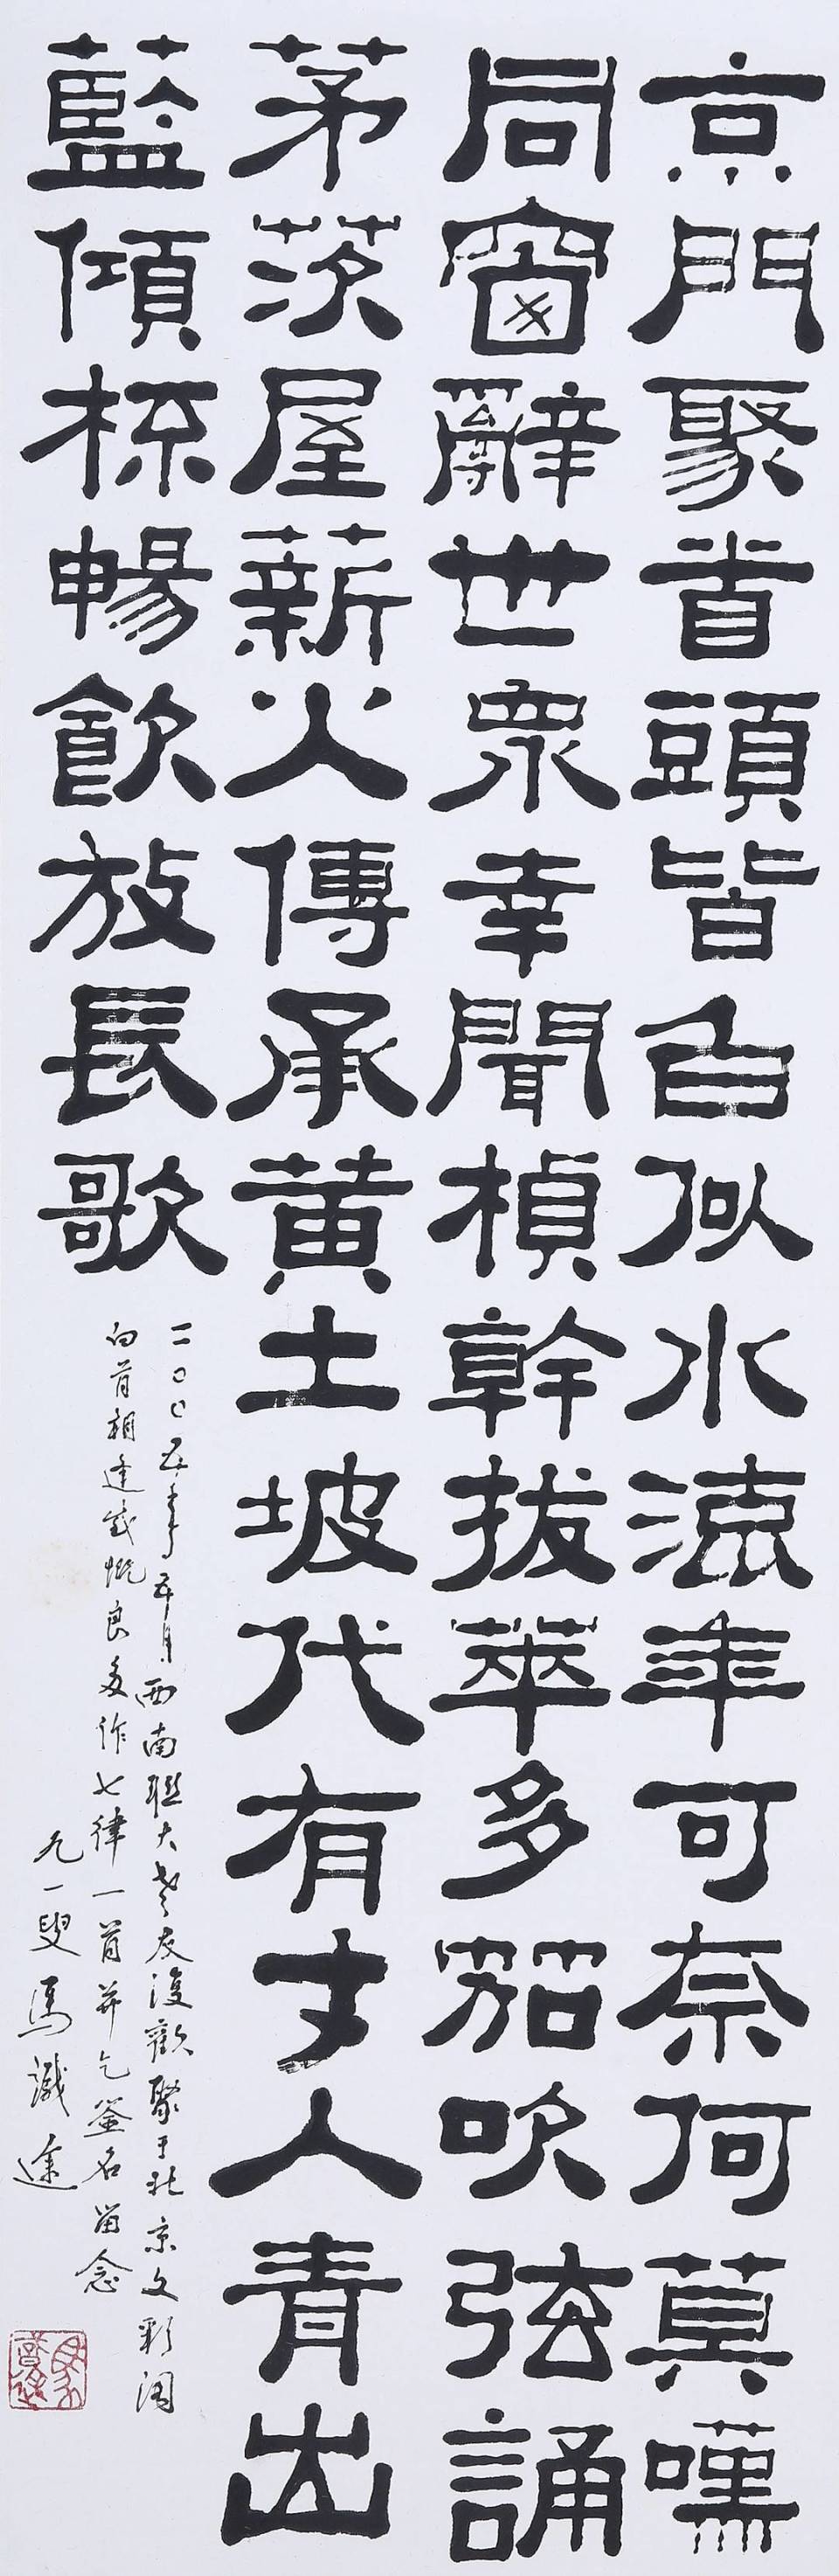 京門聚首頭皆白似水流年可奈何莫嘆
同窗辭世衆幸聞楨幹拔萃多笳吹弦誦
茅茨屋薪火傳承黄土坡代有才人青出
藍傾杯暢飲放長歌
二〇〇五年五月西南聯大老友復歡聚于北京文彩阁
白首相逢感慨良多作七律一首并乞签名留念
九一叟馬識途
馬識途